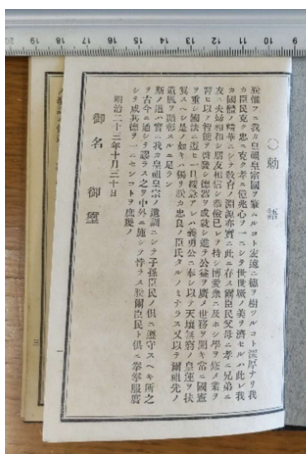 20 19 18 17 16 15 14 13 12 11 10 9
○勅語
朕惟フニ我カ皇祖皇宗國ヲ肇ムルコト宏遠ニ德ヲ樹ツルコト深厚ナリ我
カ臣民克ク忠ニ克ク孝ニ億兆心ヲ一ニシテ世世厥ノ美ヲ濟セルハ此レ我
カ國體ノ精華ニシテ敎育ノ淵源亦實ニ此ニ存ス爾臣民父母ニ孝ニ兄弟ニ
友ニ夫婦相和シ朋友相信シ恭儉己レヲ持シ博愛衆ニ及ホシ學ヲ修メ業ヲ
習ヒ以テ智能ヲ啓發シ德器ヲ成就シ進テ公益ヲ廣メ世務ヲ開キ常ニ國憲
ヲ重シ國法ニ遵ヒ一旦緩急アレハ義勇公ニ奉シ以テ天壤無窮ノ皇運ヲ扶
翼スヘシ是ノ如キハ獨リ朕カ忠良ノ臣民タルノミナラス又以テ爾祖先ノ
遺風ヲ顯彰スルニ足ラン
斯ノ道ハ實ニ我カ皇祖皇宗ノ遺訓ニシテ子孫臣民ノ俱ニ遵守スヘキ所之
ヲ古今ニ通シテ謬ラス之ヲ中外ニ施シテ悖ラス朕爾臣民ト俱ニ拳拳服膺
シテ咸其德ヲ一ニセンコトヲ庶幾フ
明治二十三年十月三十日
御名 御璽